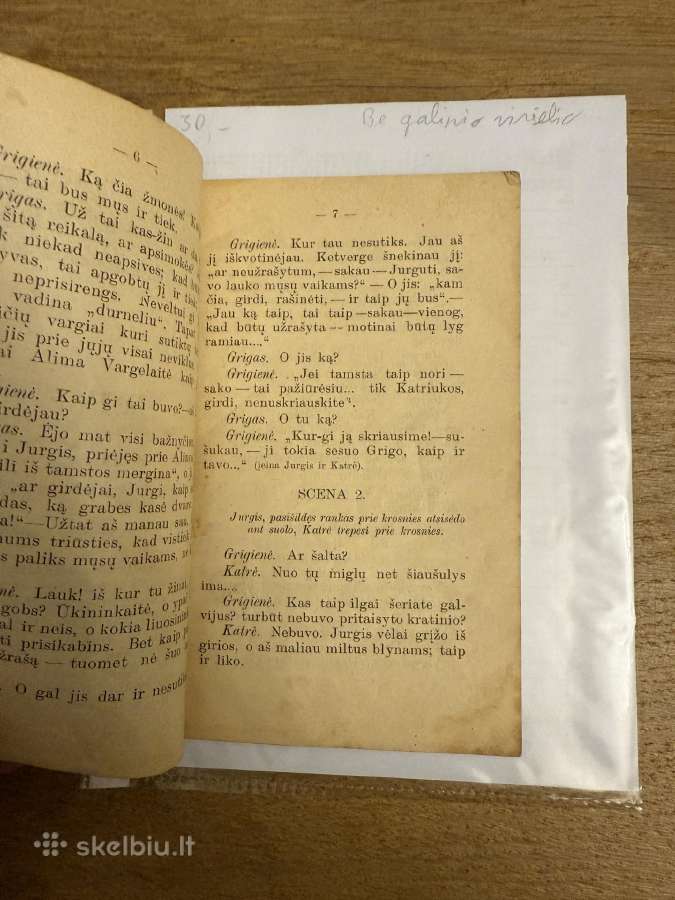 30,-
Be galinio viršelio
— 6 —
Grigienė. Ką čia žmonės!
— tai bus mųs ir tiek.
Grigas. Už tai kas-žin ar
šitą reikalą, ar apsimokės?
niekad neapsives; kad
tai apgobtų jį ir
neprisirengs. Neveltui
vadina „durneliu“.
vargiai kuri sutiktų
jis prie jųjų visai
Alima Vargelaitė kaip
Kaip gi tai buvo?
girdėjau?
Ėjo mat visi
i Jurgis, priėjęs prie
iš tamstos mergina“, o
„ar girdėjai, Jurgi, kaip
ką grabes kasė
Užtat aš manau sau,
mums triūsties, kad vistiek
paliks mųsų vaikams,
Lauk! iš kur tu
Ūkininkaitė, o
ir neis, o kokia
prisikabins. Bet kaip
— tuomet nė šuo
O gal jis dar ir
— 7 —
Grigienė. Kur tau nesutiks. Jau aš
jį iškvotinėjau. Ketverge šnekinau jį:
„ar neužrašytum, — sakau — Jurguti, sa-
vo lauko mųsų vaikams?“ — O jis: „kam
čia, girdi, rašinėti, — ir taip jų bus“.—
„Jau ką taip, tai taip —sakau—vienog,
kad būtų užrašyta — motinai būtų lyg
ramiau....“
Grigas. O jis ką?
Grigienė. „Jei tamsta taip nori —
sako — tai pažiūrėsiu... tik Katriukos,
girdi, nenuskriauskite“.
Grigas. O tu ką?
Grigienė. „Kur-gi ją skriausime!—su-
šukau, — ji tokia sesuo Grigo, kaip ir
tavo...“ (įeina Jurgis ir Katrė).
SCENA 2.
Jurgis, pasišildęs rankas prie krosnies atsisėdo
ant suolo, Katrė trepesi prie krosnies.
Grigienė. Ar šalta?
Katrė. Nuo tų miglų net šiaušulys
ima....
Grigienė. Kas taip ilgai šeriate gal-
vijus? turbūt nebuvo pritaisyto kratinio?
Katrė. Nebuvo. Jurgis vėlai grįžo iš
girios, o aš maliau miltus blynams; taip
ir liko.
skelbiu.lt